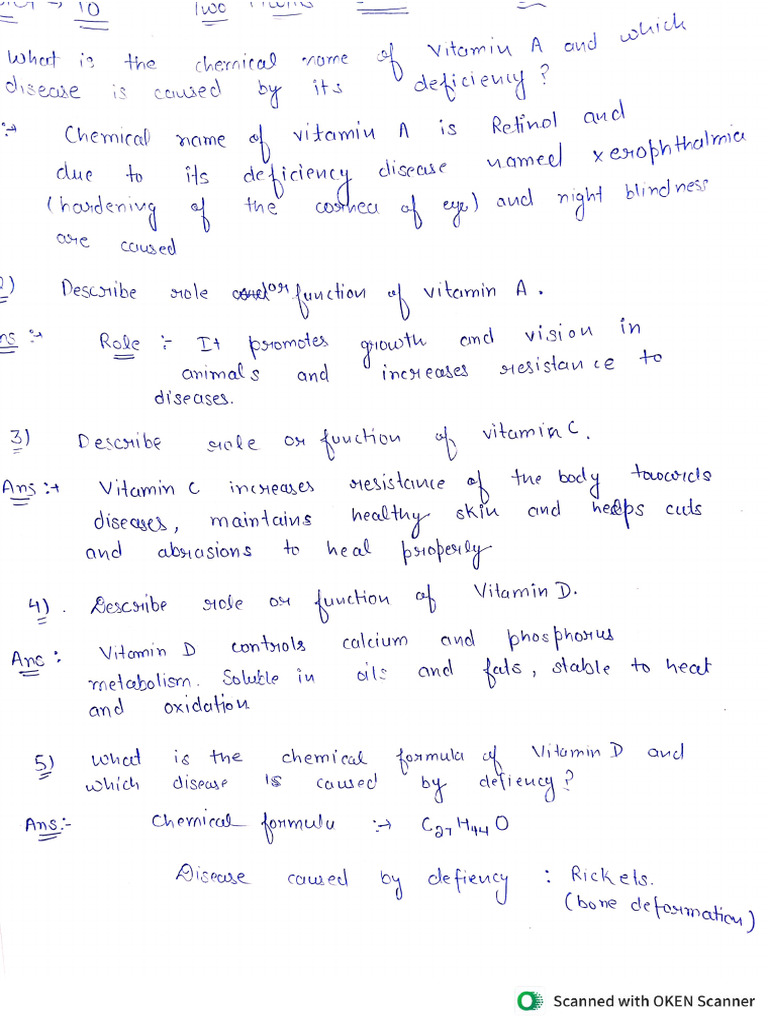 10 Two
What is the chemical name of vitamin A and which
disease is caused by its deficiency?
:→ Chemical name of vitamin A is Retinol and
due to its deficiency disease named xerophthalmia
(hardening of the cornea of eye) and night blindness
are caused
2) Describe role or function of vitamin A.
Ans :→ Role :- It promotes growth and vision in
animals and increases resistance to
diseases.
3) Describe role or function of vitamin C.
Ans :→ Vitamin C increases resistance of the body towards
diseases, maintains healthy skin and helps cuts
and abrasions to heal properly
4). Describe role or function of Vitamin D.
Ans : Vitamin D controls calcium and phosphorus
metabolism. Soluble in oils and fats, stable to heat
and oxidation
5) What is the chemical formula of Vitamin D and
which disease is caused by defiency?
Ans:- Chemical formula :→ C27H44O
Disease caused by defiency : Rickets.
(bone deformation)
Scanned with OKEN Scanner